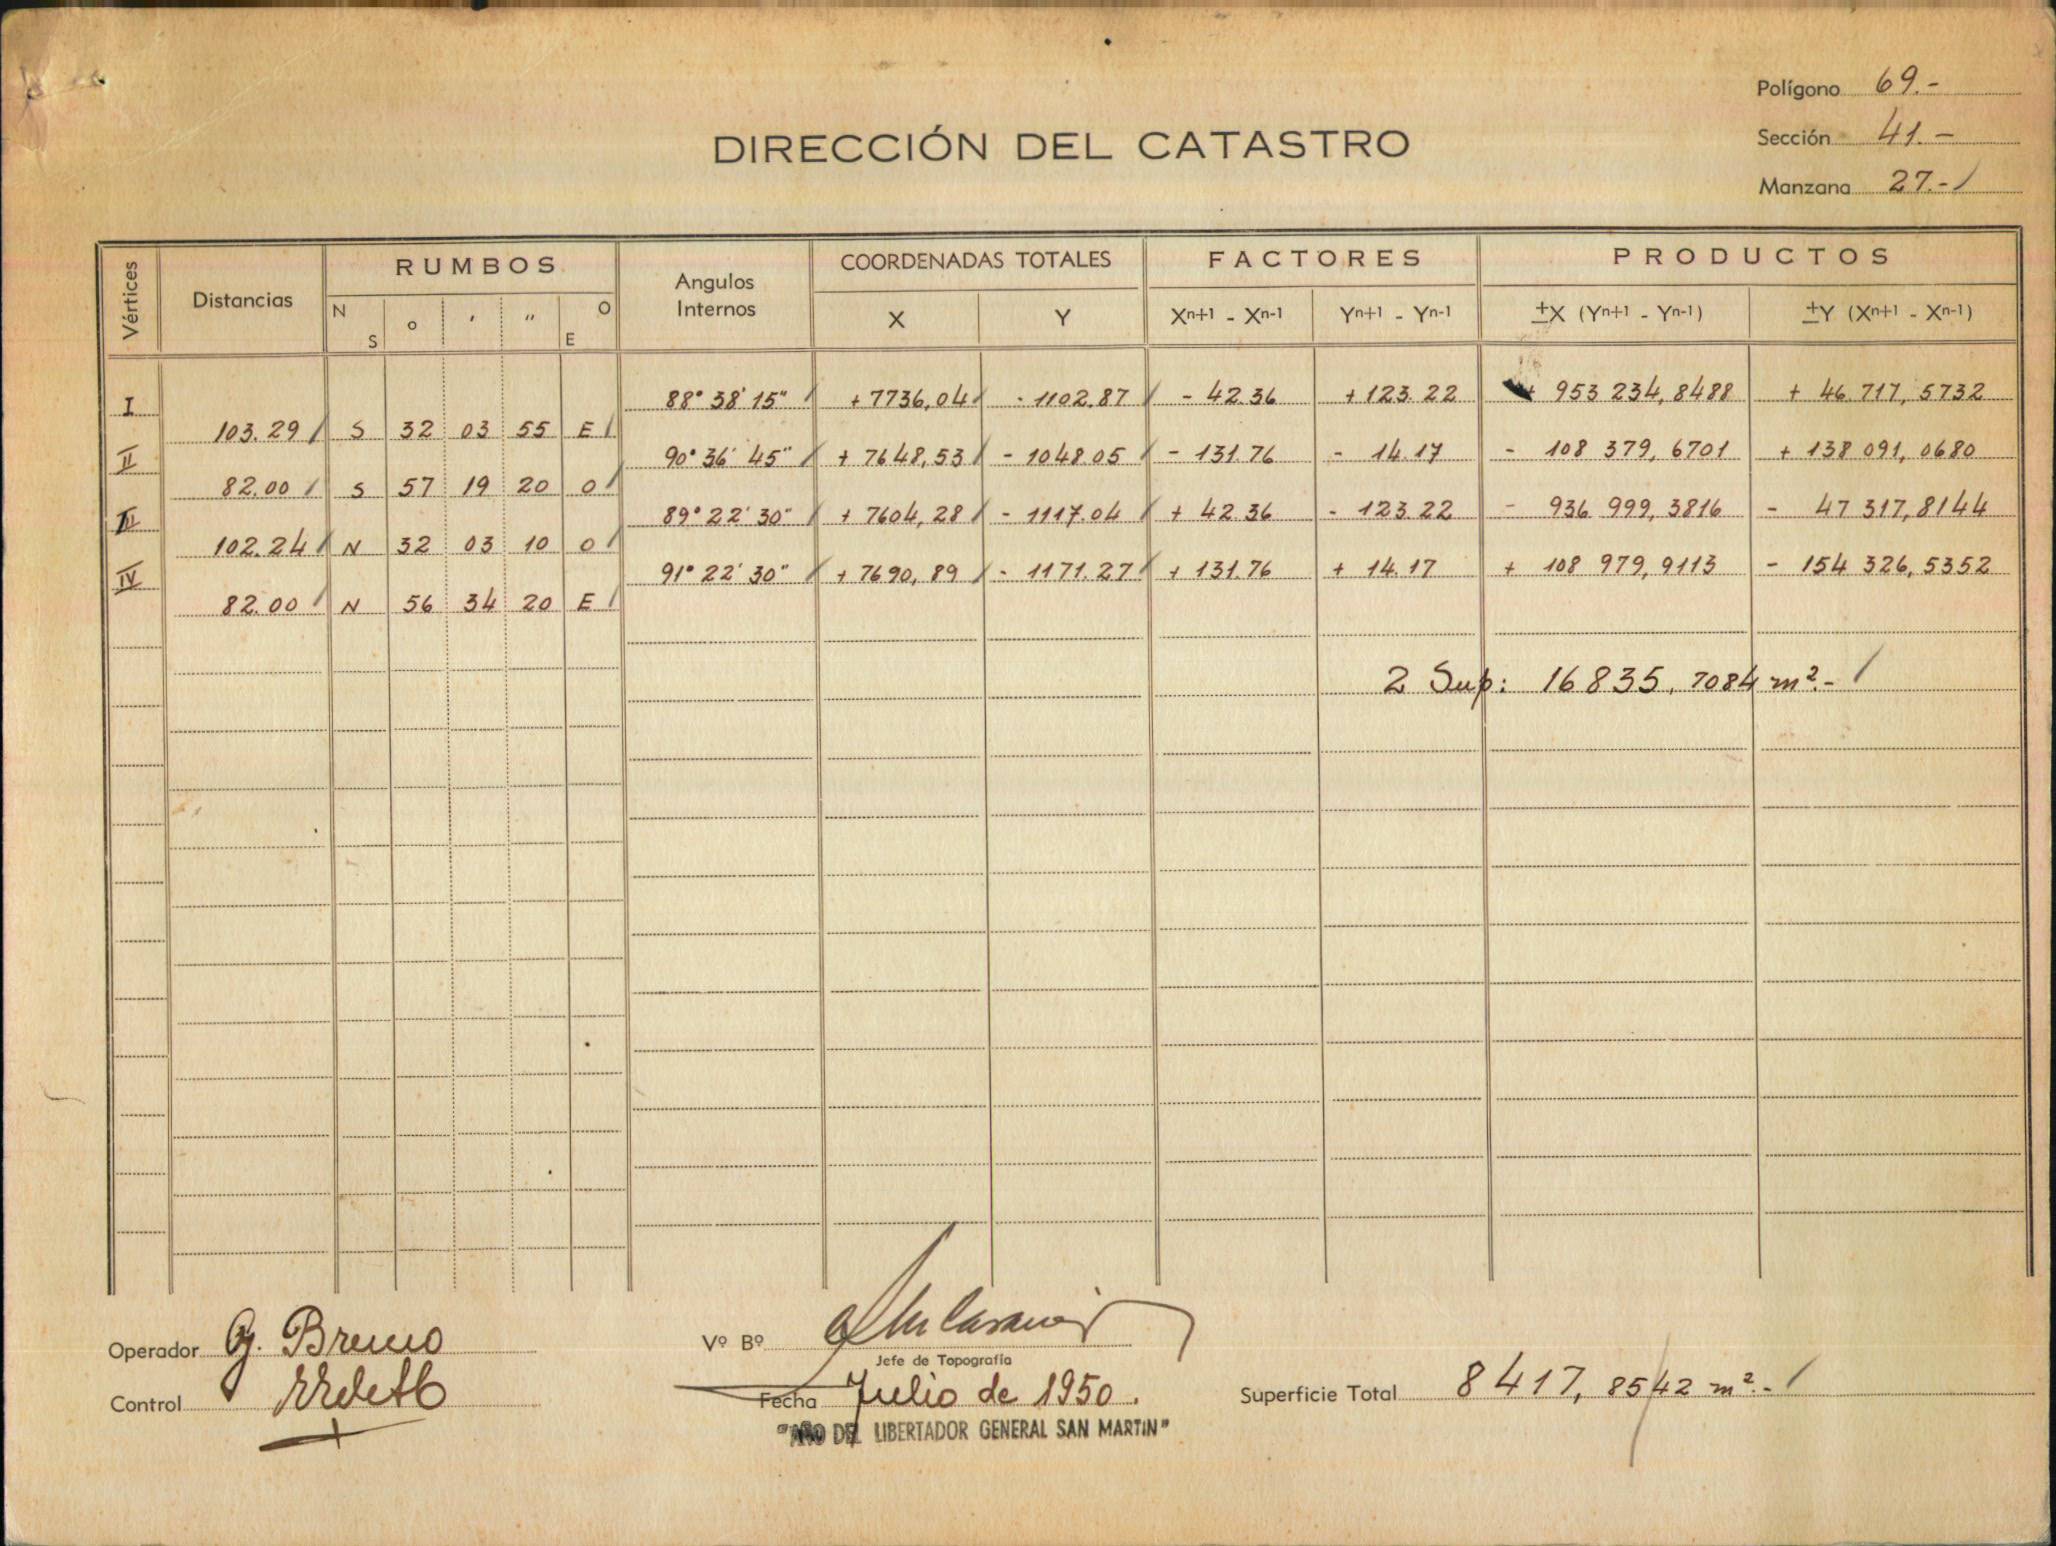 Polígono 69.-
DIRECCIÓN DEL CATASTRO
Sección 41.-
Manzana 27.-
Vértices Distancias RUMBOS Angulos Internos COORDENADAS TOTALES FACTORES PRODUCTOS
N S o ' " O E X Y Xn+1 - Xn-1 Yn+1 - Yn-1 ±X (Yn+1 - Yn-1) ±Y (Xn+1 - Xn-1)
I 88° 38' 15" + 7736,04 - 1102.87 - 42.36 + 123.22 + 953 234,8488 + 46.717,5732
103.29 S 32 03 55 E
II 90° 36' 45" + 7648,53 - 1048.05 - 131.76 - 14.17 - 108 379,6701 + 138 091,0680
82.00 S 57 19 20 O
III 89° 22' 30" + 7604,28 - 1117.04 + 42.36 - 123.22 - 936 999,3816 - 47 317,8144
102.24 N 32 03 10 O
IV 91° 22' 30" + 7690,89 - 1171.27 + 131.76 + 14.17 + 108 979,9113 - 154 326,5352
82.00 N 56 34 20 E
2 Sup: 16835,7084 m².-
Operador G. Bruno
Vº Bº
Jefe de Topografía
Control
Fecha Julio de 1950.
Superficie Total 8417,8542 m².-
"AÑO DEL LIBERTADOR GENERAL SAN MARTIN"